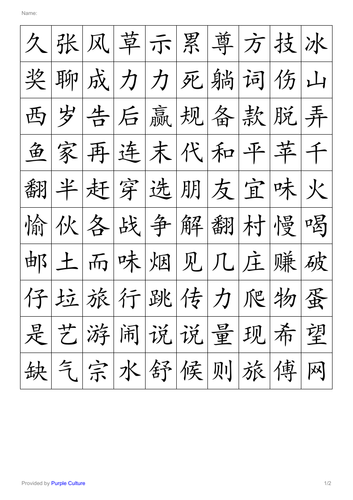 Name:
久张风草示累尊方技冰
奖聊成力力死躺词伤山
西岁告后赢规备款脱弄
鱼家再连末代和平苹千
翻半赶穿选朋友宜味火
愉伙各战争解翻村慢喝
邮土而味烟见几庄赚破
仔垃旅行跳传力爬物蛋
是艺游闹说说量现希望
缺气宗水舒候则旅傅网
Provided by Purple Culture 1/2